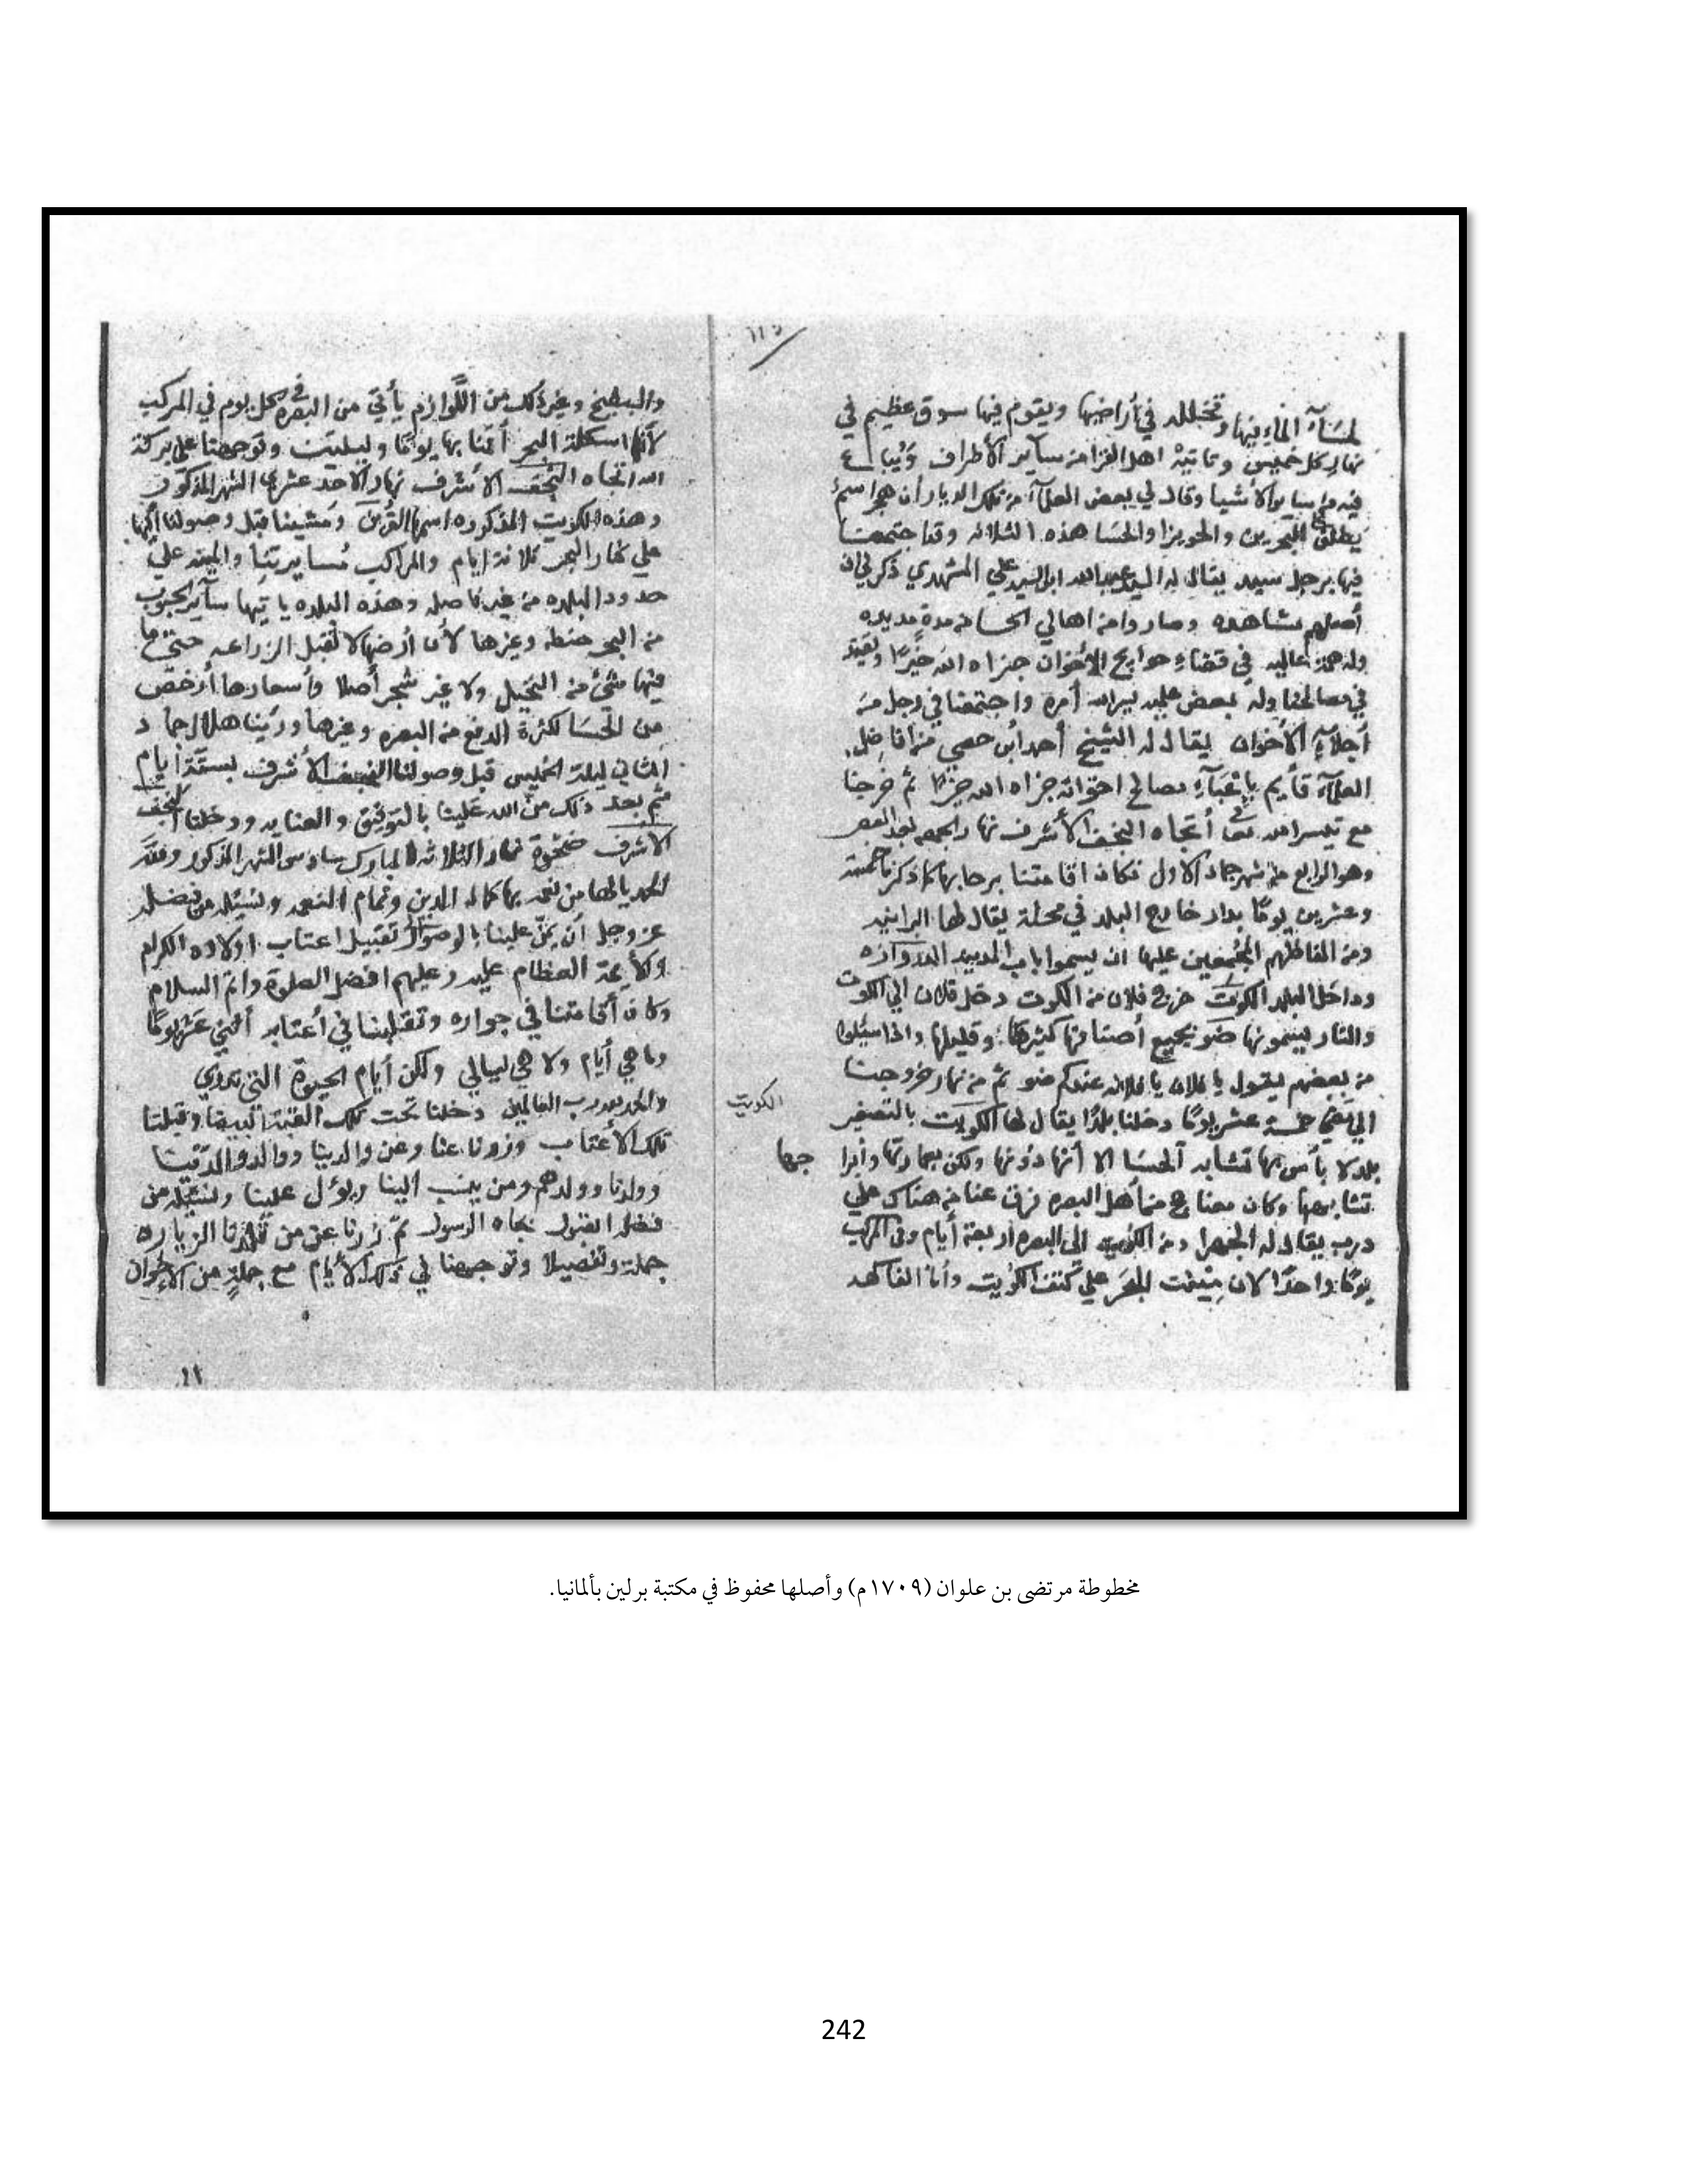 ١١٥
لمسآء الماء فيها وتخلله في أراضيها ويقوم فيها سوق عظيم في
نهار كل خميس وتاتيه اهل القرا من سآير الأطراف ويباع
فيه من سايرالأشيا وقال لي بعض العلمآء من تلك الديار أن هجر اسم
يطلق على البحرين والحويزا والحسا هذه الثلاثه وقد اجتمعت
فيها برجل سيد يقال له السيد عبدالله ابن السيد علي المشهدي ذكر لي ان
أصلهم مشاهده وصاروا من اهالي الحسا من مدة مديده
وله همة عاليه في قضاء حوايج الأخوان جزاه الله خيرًا وتقيد
في مصالحنا وله بعض يسرالله أمره واجتمعنا في رجل من
أجلآء الأخوان يقال له الشيخ أحمد أبن حجي من افاضل
العلمآء قأيم بإعبآء مصالح اخوانه جزاه الله خيرًا ثم خرجنا
مع تيسرالله تعا أتجاه النجف الأشرف نهار الجمعه بعد العصر
وهو الرابع من شهر جماد الاول فكان اقامتنا برحابها كما ذكرنا خمسة
وعشرين يومًا بدار خارج البلد في محلة يقال لها البرانيه
ومن الفاظهم المجمعين عليها ان يسموا باب المدينه الدروازه
وداخل البلد الكوت خرج فلان من الكوت دخل فلان الي الكوت
والنار يسمونها ضو بجميع أصنافها كثيرها وقليلها واذا سئلوا
من بعضهم يقول يا فلان يا فلانه عندكم ضو ثم من نهار خروجنا
الي تمام خمسة عشر يومًا دخلنا بلدًا يقال لها الكويت بالتصغير
الكويت
بلد لا بأس بها تشابه الحسا الا أنها دونها ولكن بعمارتها وأبرا جها
تشابهها وكان معنا حج من أهل البصره فرق عنا من هناك علي
درب يقال له الجهرا ومن الكويت إلى البصره اربعة أيام وفي المركب
يومًا واحدًا لان مينت البحر علي كتف الكويت وأما الفاكهه
والبطيخ وغير ذلك من اللوازم يأتي من البصره في كل يوم في المركب
لأنها اسكلة البحر أقمنا بها يومًا وليلتين وتوجهنا على بركة
الله اتجاه النجف الأشرف نهار الأحد عشر من الشهر المذكور
وهذه الكويت المذكوره اسمها القرين ومشينا قبل وصولنا إليها
علي كنار البحر ثلاثة ايام والمراكب مسايرتنا والمينه علي
حدود البلده من غير فاصله وهذه البلده ياتيها سآير الحبوب
من البحر حنطه وغيرها لأن أرضها لا تقبل الزراعه حتى ما
فيها شئ من النخيل ولا غير شجر أصلا وأسعارها أرخص
من الحسا لكثرة الدفع من البصره وغيرها ورئينا هلال جماد
الثاني ليلة الخميس قبل وصولنا النجف الأشرف بستة أيام
ثم بعد ذلك منّ الله علينا بالتوفيق والعنايه ودخلنا النجف
الاشرف ضحوة نهار الثلاثه المبارك سادس الشهر المذكور ولله
الحمد يالها من نعمه بها كمال الدين وتمام النعمه ونسئله من فضله
عز وجل أن يمنّ علينا بالوصول لتقبيل اعتاب اولاده الكرام
والأيمة العظام عليه وعليهم افضل الصلوة واتم السلام
وكان أقامتنا في جواره وتقبلنا في أعتابه أثني عشر يومًا
وما هي أيام ولا هي ليالي ولكن أيام الحيوة التي تروي
والحمد لله رب العالمين دخلنا تحت تلك القبة البيضا وقبلنا
تلك الأعتاب وزرنا عنا وعن والدينا ووالد والدينا
وولدنا وولدهم ومن ينسب الينا ويؤل علينا ونسئله من
فضله القبول بجاه الرسول ثم زرنا عن من قلدنا الزياره
جملة وتفضيلا وتوجهنا في تلك الأيام مع جملة من الإخوان
١١
مخطوطة مرتضى بن علوان (١٧٠٩م) وأصلها محفوظ في مكتبة برلين بألمانيا.
242